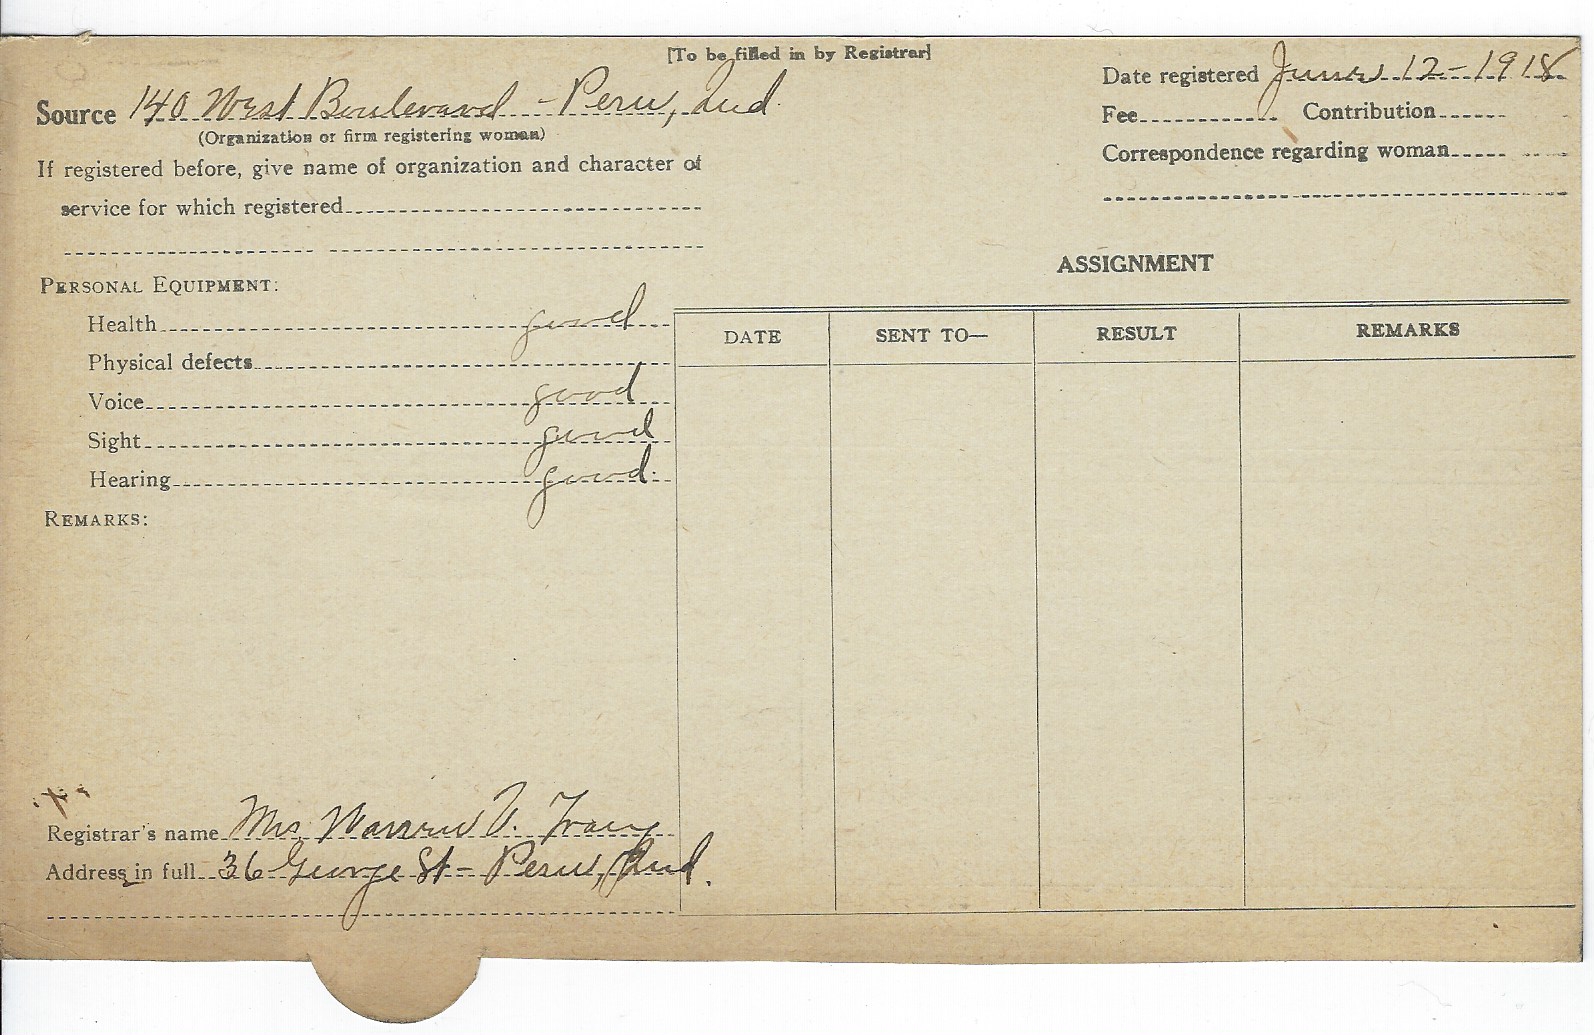 [To be filled in by Registrar]
Date registered June 12 - 1918
Source 140 West Boulevard - Peru, Ind.
(Organization or firm registering woman)
Fee Contribution
If registered before, give name of organization and character of
service for which registered
Correspondence regarding woman
ASSIGNMENT
PERSONAL EQUIPMENT:
Health good
Physical defects
Voice good
Sight good
Hearing good
DATE SENT TO— RESULT REMARKS
REMARKS:
Registrar's name Mrs. Warren V. Tracy
Address in full 36 George St - Peru, Ind.